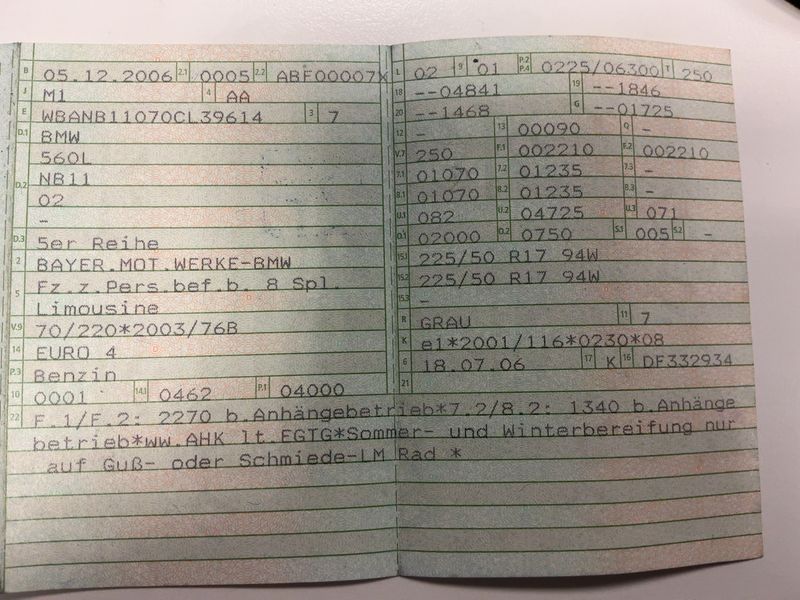 B 05.12.2006 2.1 0005 2.2 ABF00007X
J M1 4 AA
E WBANB11070CL39614 3 7
D.1 BMW
560L
D.2 NB11
02
-
D.3 5er Reihe
2 BAYER.MOT.WERKE-BMW
5 Fz.z.Pers.bef.b. 8 Spl.
Limousine
V.9 70/220*2003/76B
14 EURO 4
P.3 Benzin
10 0001 14.1 0462 P.1 04000
L 02 9 01 P.2 P.4 0225/06300 T 250
18 --04841 19 --1846
20 --1468 G --01725
12 - 13 00090 Q -
V.7 250 F.1 002210 F.2 002210
7.1 01070 7.2 01235 7.3 -
8.1 01070 8.2 01235 8.3 -
U.1 082 U.2 04725 U.3 071
O.1 02000 O.2 0750 S.1 005 S.2 -
15.1 225/50 R17 94W
15.2 225/50 R17 94W
15.3 -
R GRAU 11 7
K e1*2001/116*0230*08
6 18.07.06 17 K 16 DF332934
21
22 F.1/F.2: 2270 b.Anhängebetrieb*7.2/8.2: 1340 b.Anhänge
betrieb*ww.AHK lt.EGTG*Sommer- und Winterbereifung nur
auf Guß- oder Schmiede-LM Rad *